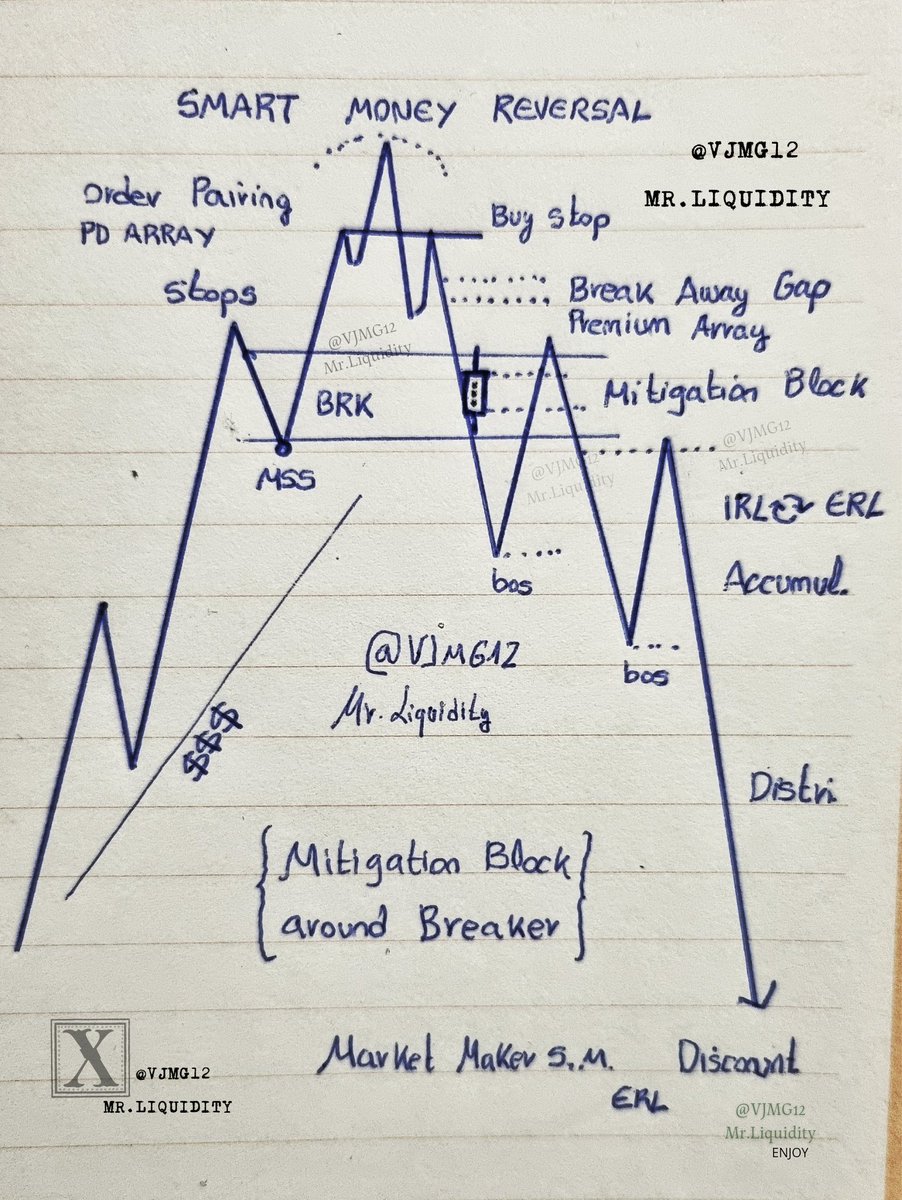 SMART MONEY REVERSAL
@VJMG12
MR.LIQUIDITY
Order Pairing
PD ARRAY
Buy stop
Stops
Break Away Gap
Premium Array
@VJMG12
Mr.Liquidity
BRK
Mitigation Block
MSS
@VJMG12
Mr.Liquidity
@VJMG12
Mr.Liquidity
IRL ERL
bos
Accumul.
@VJMG12
Mr. Liquidity
bos
$$$
Distri
Mitigation Block
around Breaker
X
@VJMG12
MR.LIQUIDITY
Market Maker S.M. Discount
ERL
@VJMG12
Mr.Liquidity
ENJOY